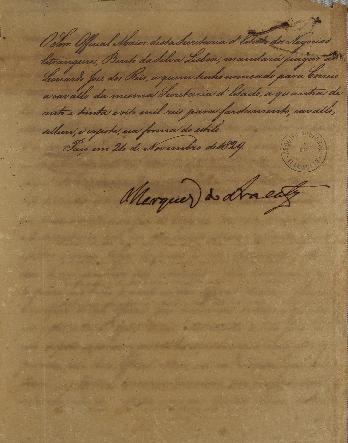 O Snr Official Maior desta Secretaria d'Estado dos Negocios
Estrangeiros, Bento da Silva Lisboa, mandará pagar a
Leonardo José dos Reis, a quem tenho nomeado para Correio
a cavallo da mesma Secretaria d'Estado, a quantia de
cento e trinta e oito mil reis para fardamento, cavallo,
sellim, e capote, na forma do estilo.
Paço em 26 de Novembro de 1829
Marquez do Aracaty